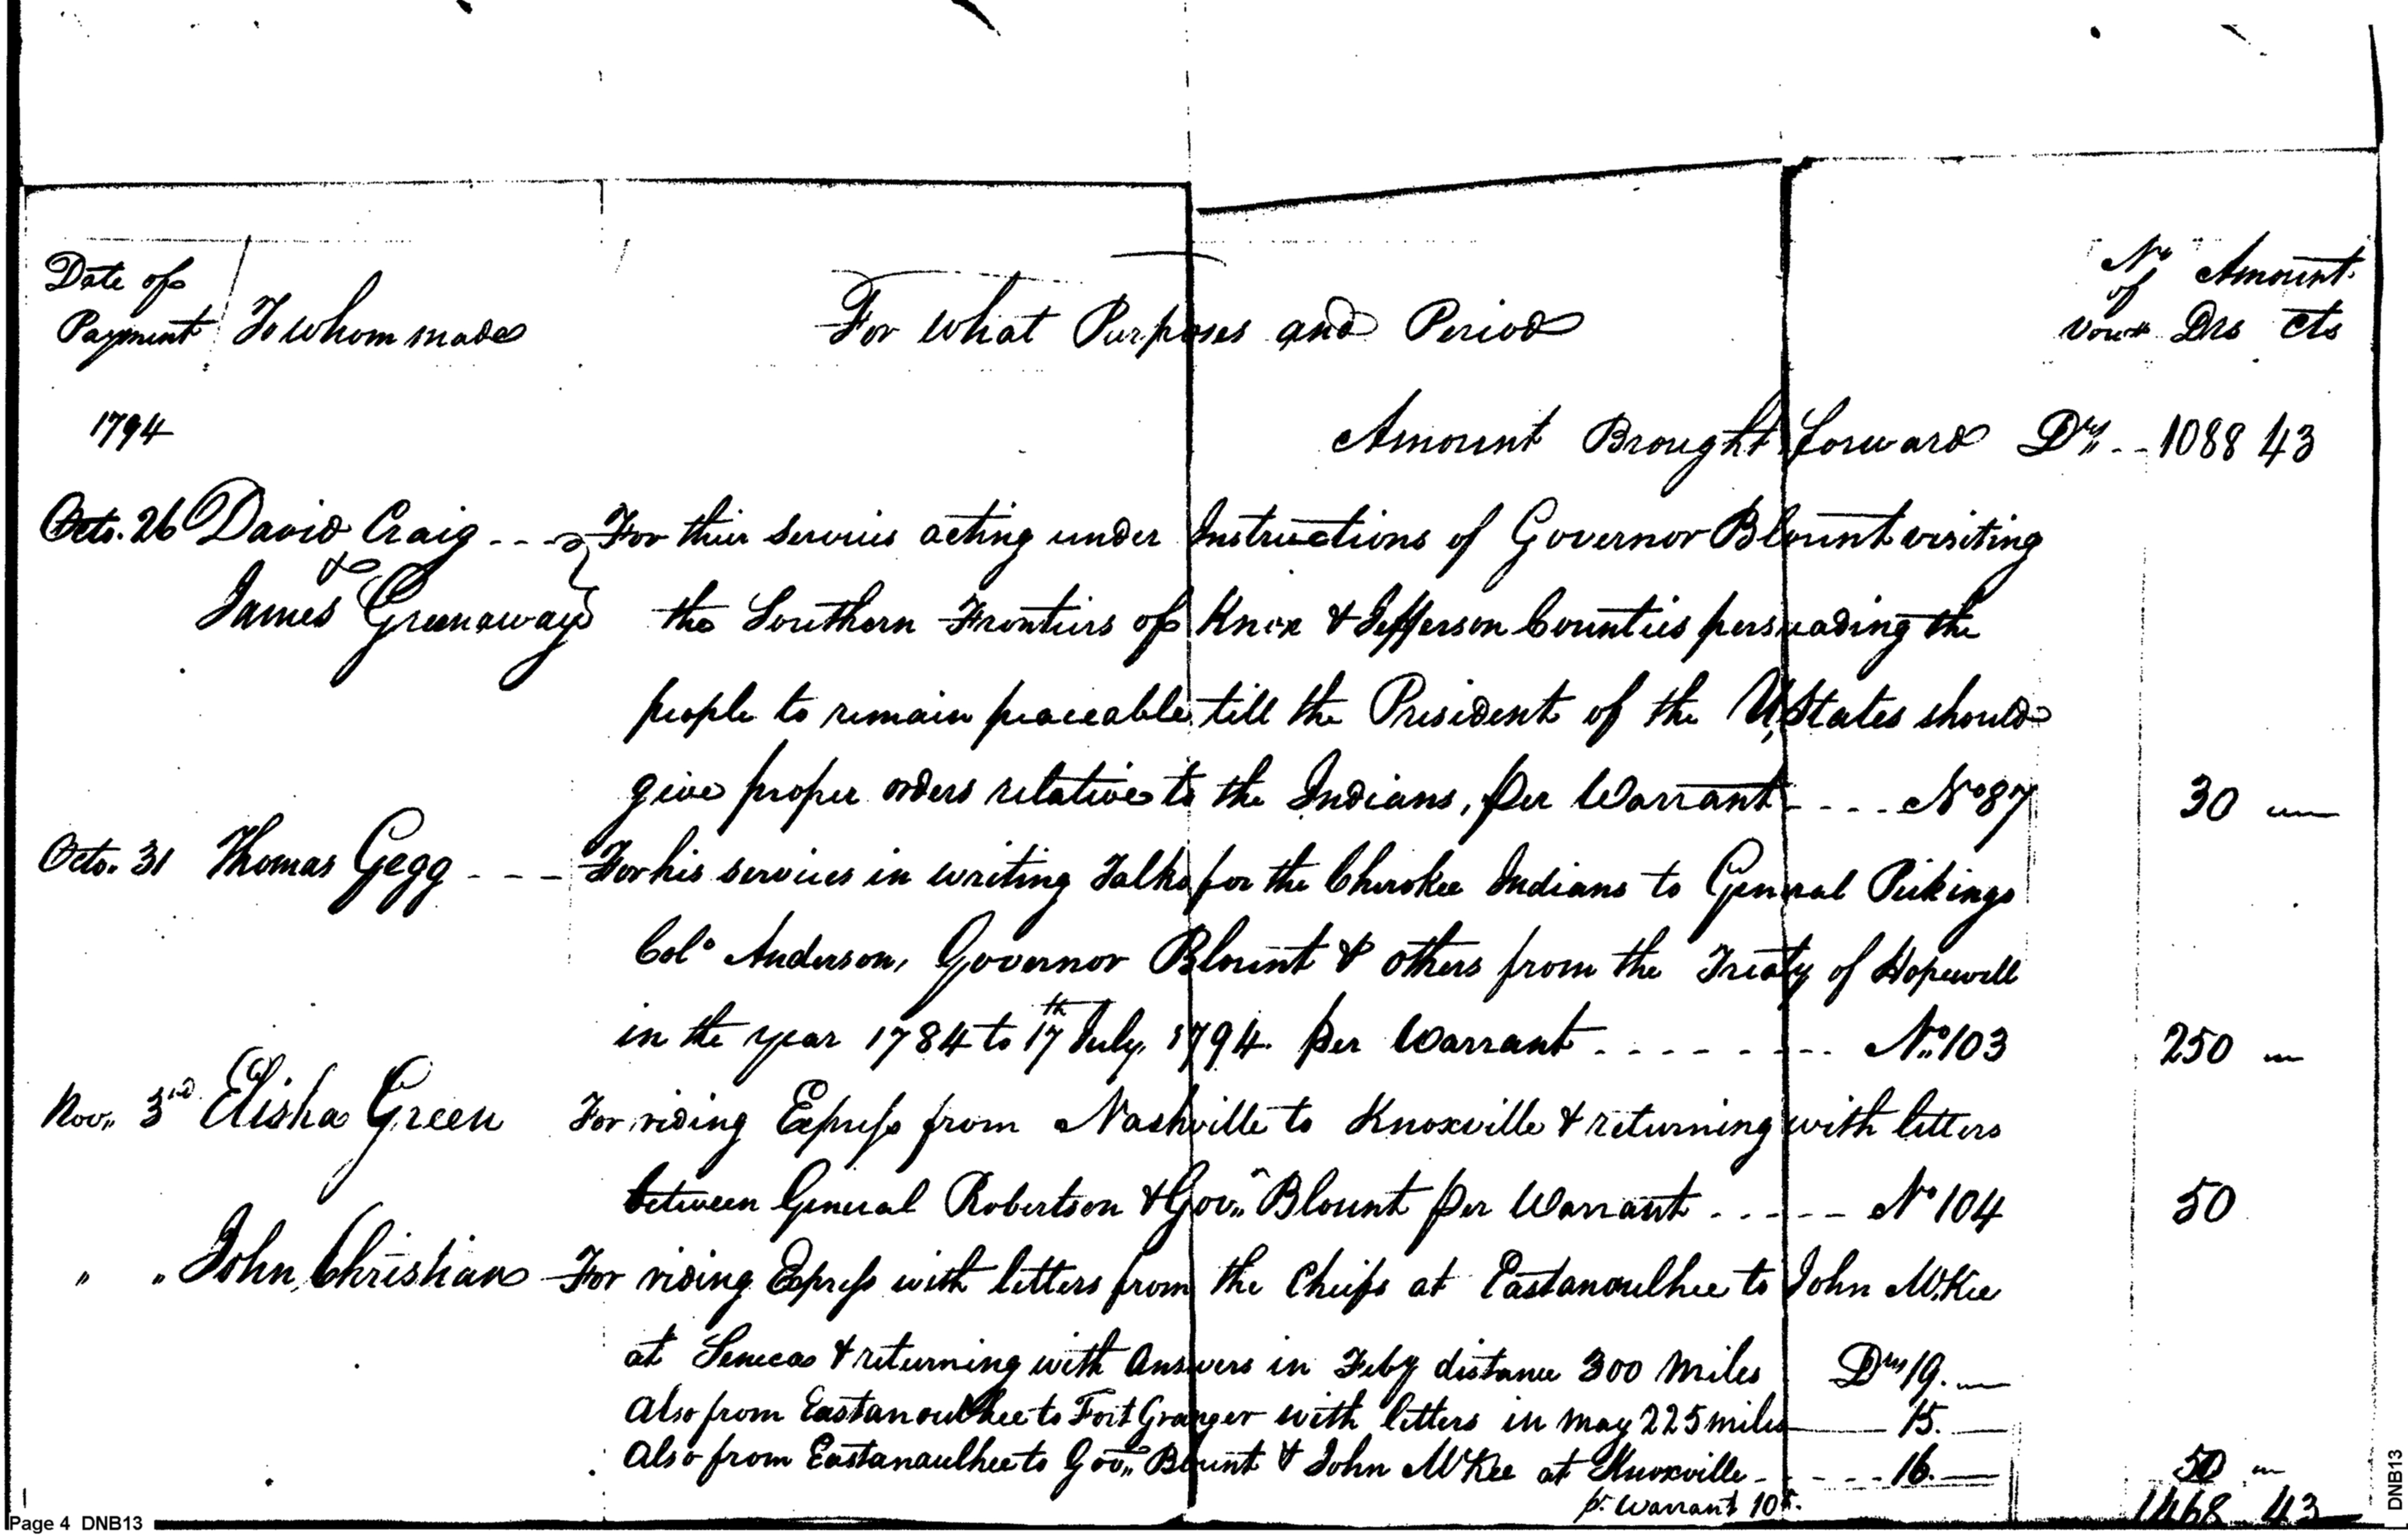 Date of
Payment To whom made For what Purposes and Period No of vour Amount Drs Cts
1794 Amount Brought forward Drs. -- 1088 43
Octo. 26 David Craig --- For their services acting under Instructions of Governor Blount visiting
&
James Greenaway the Southern Frontiers of Knox & Jefferson Counties persuading the
people to remain peaceable till the President of the U, States should
give proper orders relative to the Indians, per Warrant --- No 87 30 —
Octo. 31 Thomas Gegg --- For his services in writing Talks for the Cherokee Indians to General Pickings
Colo Anderson, Governor Blount & others from the Treaty of Hopewell
in the year 1784 to 17th July, 1794. per Warrant -------- No. 103 250 —
Nov. 3rd Elisha Green For riding Express from Nashville to Knoxville & returning with letters
between General Robertson & Gov. Blount per Warrant ----- No 104 50
" " John Christian For riding Express with letters from the Cheifs at Eastanoulhee to John McKee
at Seneca & returning with Answers in Feby distance 300 Miles Drs 19. —
Also from Eastanoulhee to Fort Granger with letters in May 225 miles — 15. —
Also from Eastanaulhee to Gov. Blount & John McKee at Knoxville ----- 16. — 50 —
pr. Warrant 1468 43
Page 4 DNB13
DNB13